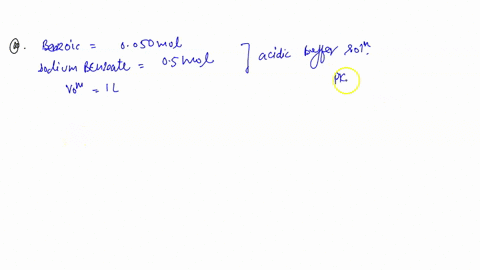 (a). Benzoic = 0.050 mol
Sodium Benzoate = 0.5 mol ] acidic buffer solⁿ.
Volᵐ = 1L
PK